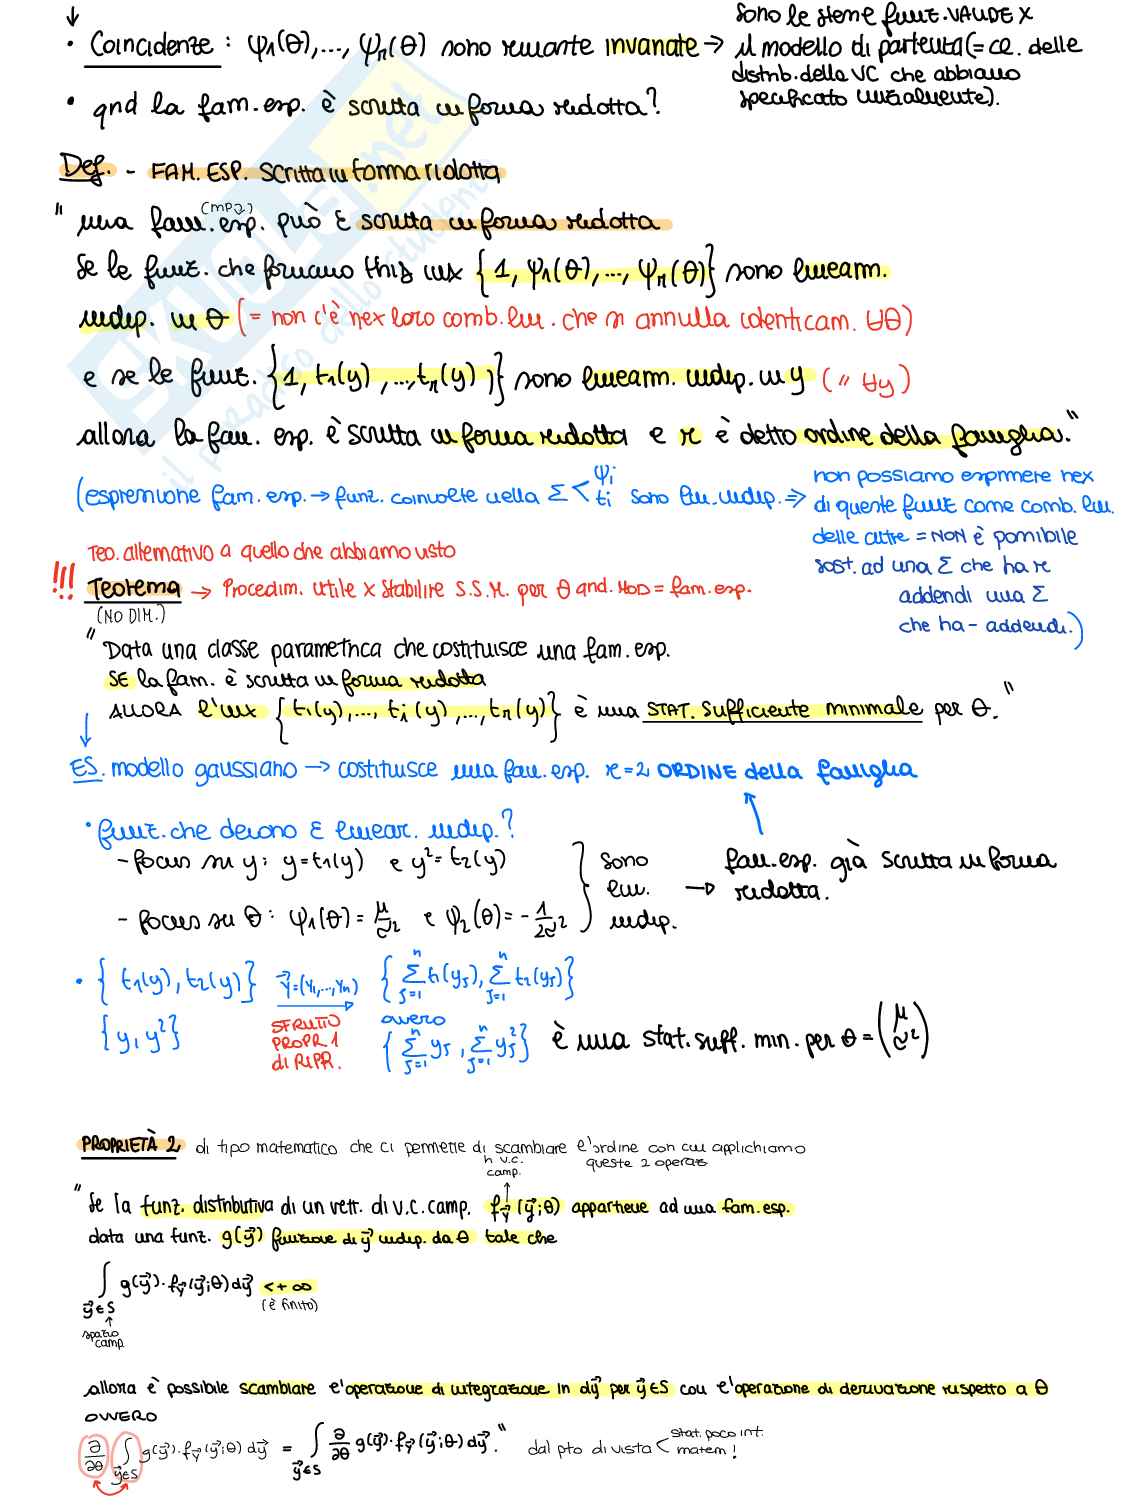 • Coincidenze : ψ₁(θ),..., ψr(θ) sono rimaste invariate → sono le stesse funz. VALIDE x
il modello di partenza (= ce. delle
distrib. della VC che abbiamo
specificato inizialmente).
• qnd la fam. esp. è scritta in forma ridotta?
Def. - FAM. ESP. scritta in forma ridotta
" una fam. esp. può E scritta in forma ridotta
se le funz. che formano this inx {1, ψ₁(θ), ..., ψr(θ)} sono linearm.
indip. in θ (= non c'è nex loro comb. lin. che si annulla identicam. ∀θ)
e se le funz. {1, t₁(y), ..., tr(y)} sono linearm. indip. in y ( " ∀y )
allora la fam. esp. è scritta in forma ridotta e r è detto ordine della famiglia."
(espressione fam. esp. → funz. coinvolte nella Σ < ψi ti sono lin. indip. ⇒ non possiamo esprimere nex
di queste funz come comb. lin.
delle altre = NON è possibile
sost. ad una Σ che ha r
addendi una Σ
che ha - addendi.)
Teo. alternativo a quello che abbiamo visto
!!! Teorema → Procedim. utile x stabilire S.S.M. per θ qnd. MOD = fam. esp.
(NO DIM.)
" Data una classe parametrica che costituisce una fam. esp.
SE la fam. è scritta in forma ridotta
ALLORA l'inx {t₁(y), ..., ti(y), ..., tr(y)} è una STAT. sufficiente minimale per θ. "
ES. modello gaussiano → costituisce una fam. esp. r=2 ORDINE della famiglia
• funz. che devono E linear. indip.?
- focus su y: y = t₁(y) e y² = t₂(y)
- focus su θ: ψ₁(θ) = μ/σ² e ψ₂(θ) = - 1/2σ²
sono
lin.
indip.
→ fam. esp. già scritta in forma
ridotta.
• {t₁(y), t₂(y)} Y⃗=(Y₁,...,Yn) {Σⁿj=1 t₁(yj), Σⁿj=1 t₂(yj)}
{y, y²} SFRUTTO
PROPR 1
di RIPR.
ovvero
{Σⁿj=1 yj, Σⁿj=1 yj²} è una stat. suff. min. per θ = (μ σ²)
PROPRIETÀ 2 di tipo matematico che ci permette di scambiare l'ordine con cui applichiamo
queste 2 operaz
n v.c.
camp.
" Se la funz. distributiva di un vett. di v.c. camp. fY⃗(y⃗;θ) appartiene ad una fam. esp.
data una funz. g(y⃗) funzione di y⃗ indip. da θ tale che
∫y⃗∈S g(y⃗)·fY⃗(y⃗;θ) dy⃗ < +∞
(è finito)
spazio
camp.
allora è possibile scambiare l'operazione di integrazione in dy⃗ per y⃗∈S con l'operazione di derivazione rispetto a θ
OVVERO
∂/∂θ ∫y⃗∈S g(y⃗)·fY⃗(y⃗;θ) dy⃗ = ∫y⃗∈S ∂/∂θ g(y⃗)·fY⃗(y⃗;θ) dy⃗." dal pto di vista < stat. poco int.
matem!